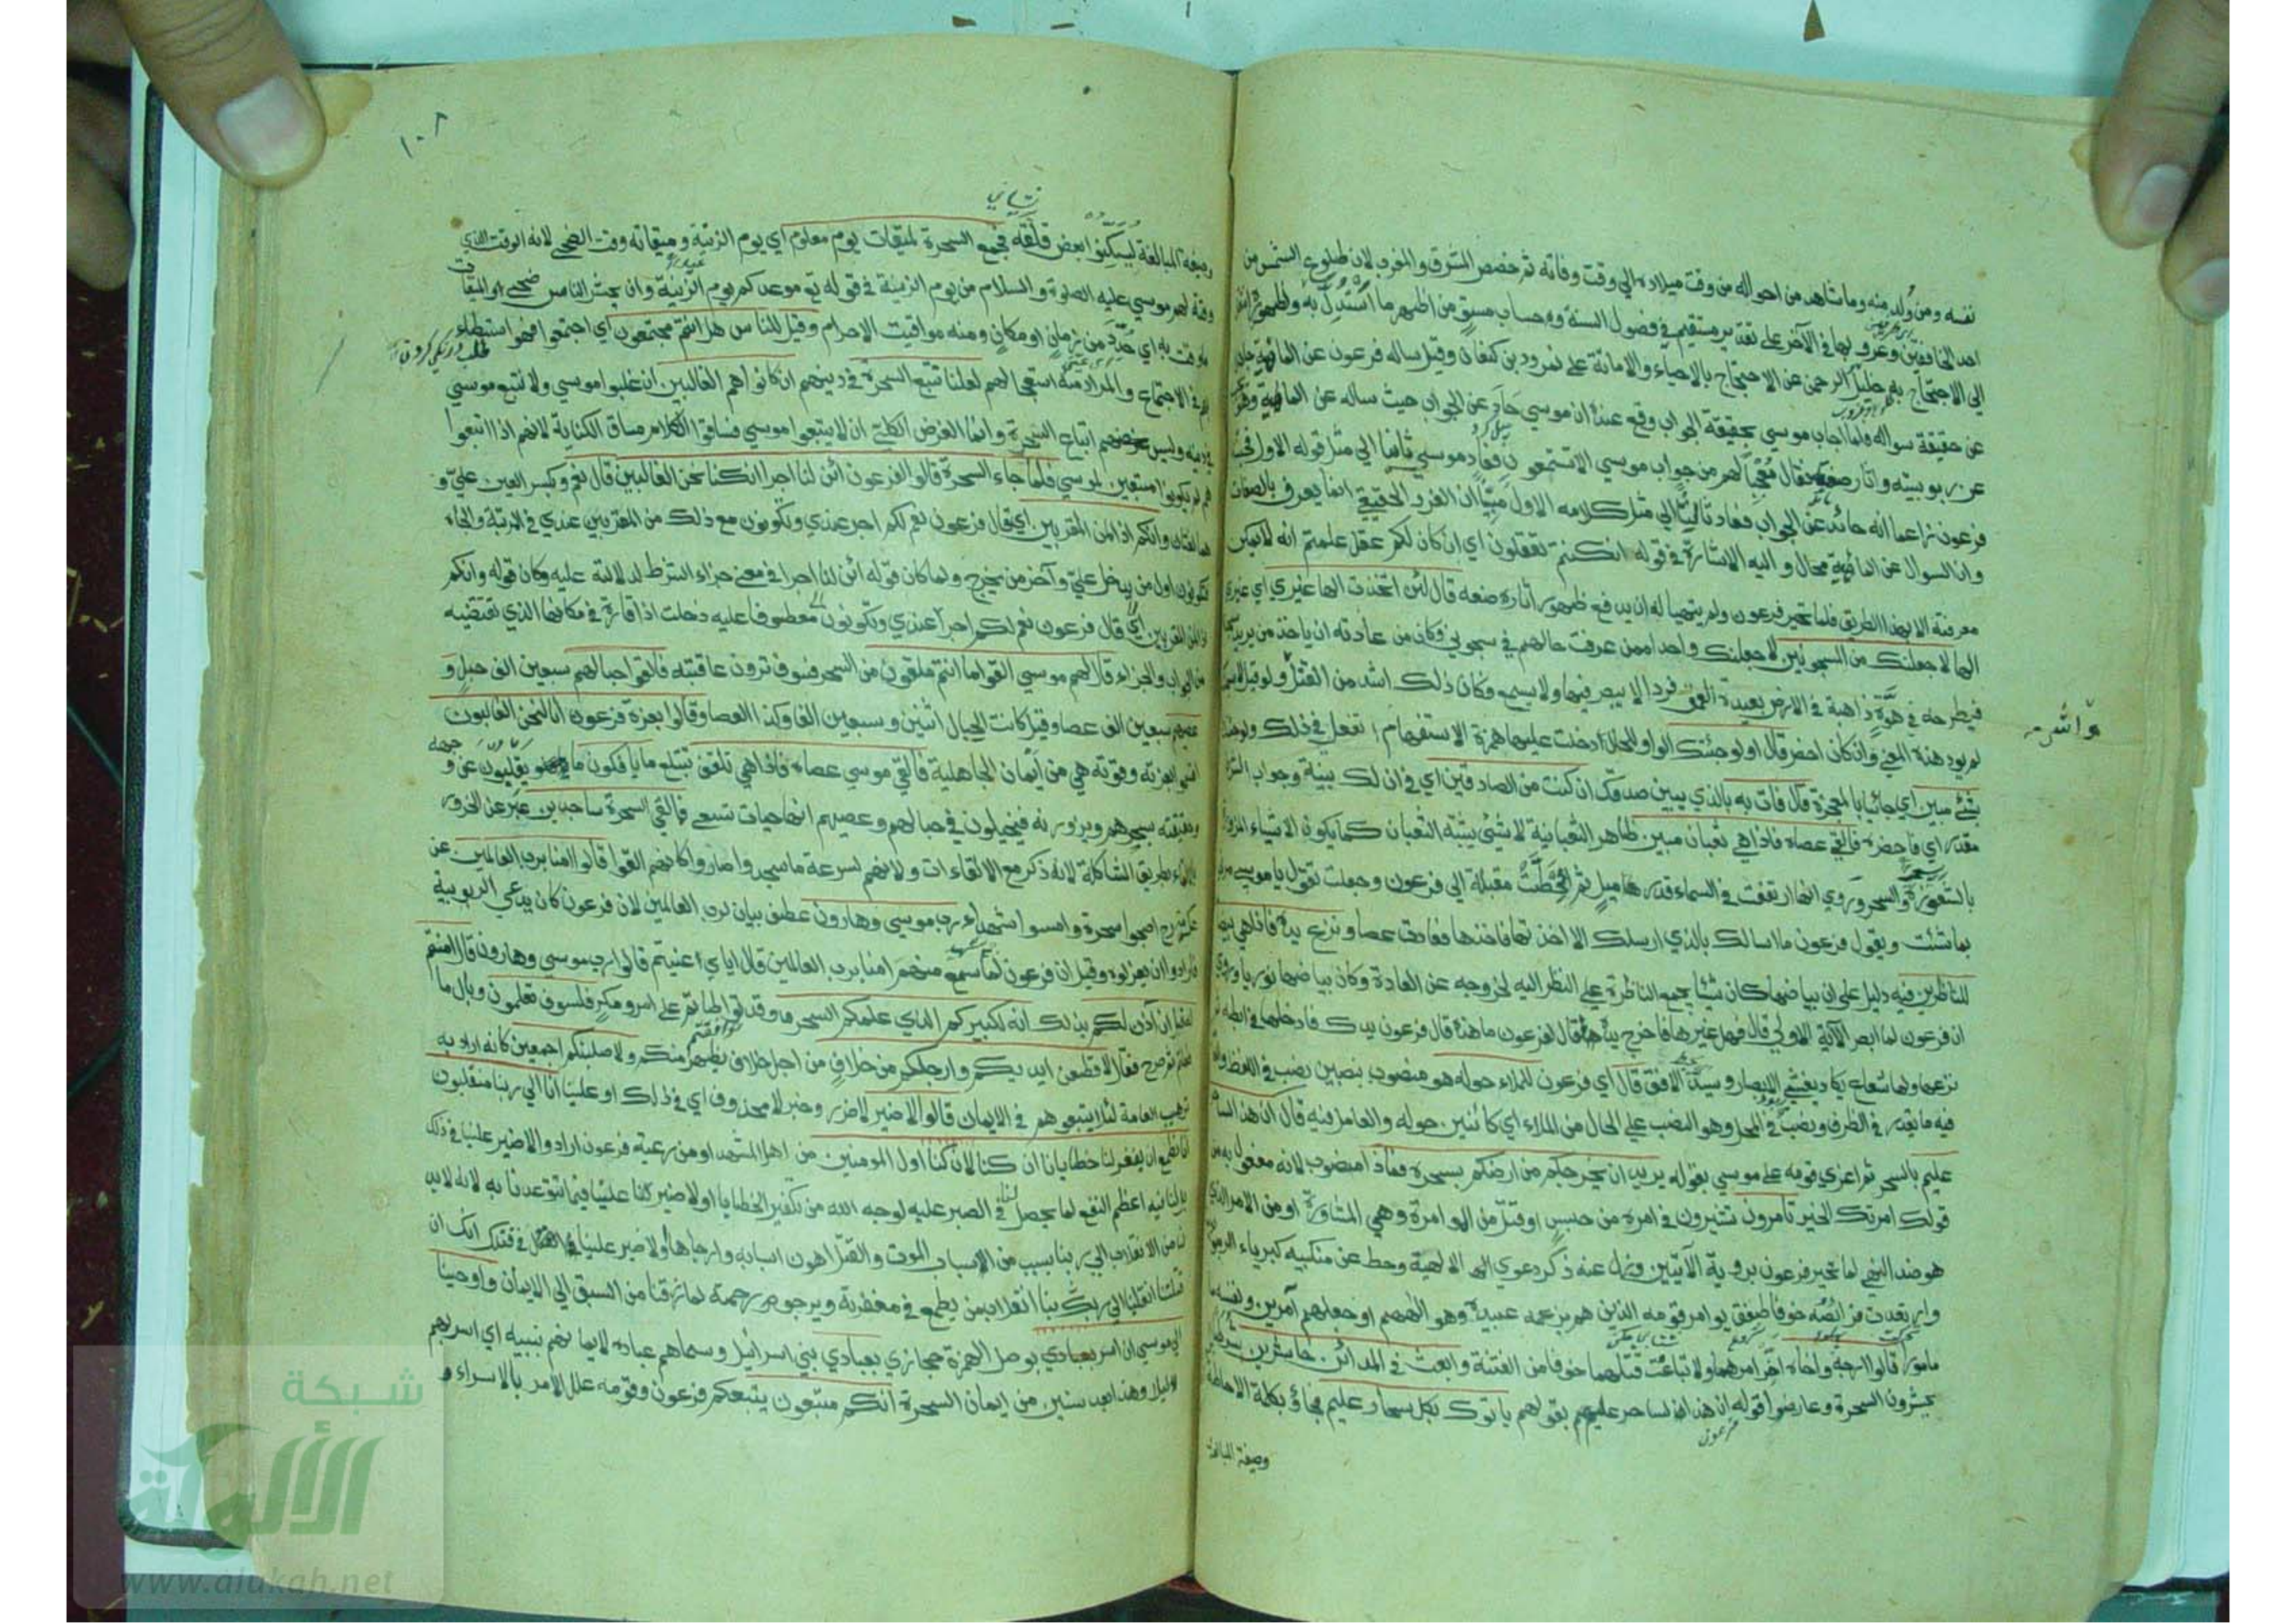 نفسه ومن ولد منه وما شاهد من احواله من وقت ميلاده الي وقت وفاته ثم خصص المشرق والمغرب لان طلوع الشمس من
احد الخافقين وغروبها في الآخر علي تقدير مستقيم في فصول السنة وحساب مستو من اظهر ما استدل به ولظهوره انتقل
الي الاحتجاج به خليل الرحمن عن الاحتجاج بالاحياء والاماتة علي نمرود بن كنعان وقيل ساله فرعون عن الماهية جاهلا
عن حقيقة سواله فلما اجاب موسي بحقيقة الجواب وقع عنده ان موسي حاد عن الجواب حيث ساله عن الماهية وهو يجيب
عن ربوبيته واثار صنعه فقال معجبا لهم من جواب موسي الا تستمعون فعاد موسي ثانيا الي مثل قوله الاول فجننه
فرعون زاعما انه حائد عن الجواب فعاد ثالثا الي مثل كلامه الاول مبينا ان الفرد الحقيقي انما يعرف بالصفات
وان السوال عن الماهية محال و اليه الاشارة في قوله ان كنتم تعقلون اي ان كان لكم عقل علمتم انه لا يمكن
معرفته الا بهذا الطريق فلما تحير فرعون ولم يتهيا له ان يدفع ظهور اثار صنعه قال لئن اتخذت الها غيري اي غيري
الها لاجعلنك من المسجونين لاجعلنك واحدا ممن عرفت حالهم في سجوني وكان من عادته ان ياخذ من يريد
فيطرحه في هوة ذاهبة في الارض بعيدة العمق فردا لا يبصر فيها ولا يسمع وكان ذلك اشد من القتل ولو قيل لاسجننك
لم يود هذه المعني وان كان اخصر قال اولو جئتك الواو للحال ادخلت عليها همزة الاستفهام اتفعل في ذلك ولو جئتك
بشيء مبين اي جائيا بالمعجزة قال فات به بالذي يبين صدقك ان كنت من الصادقين اي في ان لك بينة وجواب الشرط
مقدر اي فاحضره فالقي عصاه فاذا هي ثعبان مبين ظاهر الثعبانية لا شيئ يشبه الثعبان كما يكون الاشياء المزورة
بالشعوذة والسحر وروي انها ارتفعت في السماء قدر ميل ثم انحطت مقبلة الي فرعون وجعلت تقول يا موسي مرني
بما شئت ويقول فرعون ما اسالك بالذي ارسلك الا اخذتها فاخذها فعادت عصا ونزع يده فاذا هي بيضاء
للناظرين فيه دليل علي ان بياضها كان شيئا يجمع الناظرة علي النظر اليه لخروجه عن العادة وكان بياضها نوريا وروي
ان فرعون لما ابصر الآية الاولي قال فهل غيرها فاخرج يده فقال لفرعون ما هذه قال فرعون يدك فادخلها في ابطه ثم
نزعها ولها شعاع يكاد يغشي الابصار ويسد الافق قال اي فرعون للملاء حوله هو منصوب بنصبين نصب في اللفظ والعامل
فيه ما يقدر في الظرف ونصب في المحل وهو النصب علي الحال من الملاء اي كائنين حوله والعامل فيه قال ان هذا لساحر
عليم بالسحر ثم اغري قومه علي موسي بقوله يريد ان يخرجكم من ارضكم بسحره فماذا منصوب لانه مفعول به من
قولك امرتك الخير تامرون تشيرون في امره من حبس او قتل من الموامرة وهي المشاورة او من الامر الذي
هو ضد النهي لما تحير فرعون بروية الآيتين وزل عنه ذكر دعوي الالهية وحط عن منكبيه كبرياء الربوبية
وارتعدت فرائصه خوفا طفق يوامر قومه الذين هم بزعمه عبيده وهو الههم او جعلهم آمرين ونفسه
مامورا قالوا ارجه واخاه اخر امرهما ولا تباغت قتلهما خوفا من الفتنة وابعث في المدائن حاشرين شرطا
يحشرون السحرة وعارضوا قوله ان هذا لساحر عليم بقولهم ياتوك بكل سحار عليم فجاؤا بكلمة الاحاطة
وصيغة المبالغة
١٠٨
وصيغة المبالغة ليسكنوا بعض قلقه فجمع السحرة لميقات يوم معلوم اي يوم الزينة وميقاته وقت الضحي لانه الوقت الذي
وقته لهم موسي عليه الصلوة والسلام من يوم الزينة في قوله تع موعدكم يوم الزينة وان يحشر الناس ضحي والميقات
ما وقت به اي حدد من زمان او مكان ومنه مواقيت الاحرام وقيل للناس هل انتم مجتمعون اي اجتمعوا فهو استبطاء
لهم في الاجتماع والمراد منه استعجالهم لعلنا نتبع السحرة في دينهم ان كانوا هم الغالبين ان غلبوا موسي ولا نتبع موسي
في دينه وليس غرضهم اتباع السحرة وانما الغرض الكلي ان لا يتبعوا موسي فساقوا الكلام مساق الكناية لانهم اذا اتبعوا
هم لم يكونوا متبعين لموسي فلما جاء السحرة قالوا لفرعون ائن لنا لاجرا ان كنا نحن الغالبين قال نعم وبكسر العين علي و
هما لغتان وانكم اذا لمن المقربين اي قال فرعون نعم لكم اجر عندي وتكونون مع ذلك من المقربين عندي في المرتبة والجاه
تكونون اول من يدخل علي وآخر من يخرج ولما كان قوله ائن لنا لاجرا في معني جزاء الشرط لدلالته عليه وكان قوله وانكم
اذا لمن المقربين اي قال فرعون نعم لكم اجرا عندي وتكونون معطوفا عليه دخلت اذا قارة في مكانها الذي تقتضيه
من الجواب والجزاء قال لهم موسي القوا ما انتم ملقون من السحر فسوف ترون عاقبته فالقوا حبالهم سبعين الف حبل و
عصيهم سبعين الف عصا وقيل كانت الحبال اثنين وسبعين الفا وكذا العصا وقالوا بعزة فرعون انا لنحن الغالبون
اقسموا بعزته وقوته هي من ايمان الجاهلية فالقي موسي عصاه فاذا هي تلقف تبتلع ما يافكون ما يقلبونه عن وجهه و
حقيقته بسحرهم ويزورونه فيخيلون في حبالهم وعصيهم انها حيات تسعي فالقي السحرة ساجدين عبر عن الخرور
بالالقاء بطريق المشاكلة لانه ذكر مع الالقاءات ولانهم لسرعة ما سجدوا صاروا كانهم القوا قالوا امنا برب العالمين عن
عكرمة رح اصبحوا سحرة وامسوا شهداء رب موسي وهارون عطف بيان لرب العالمين لان فرعون كان يدعي الربوبية
فارادوا ان يعزلوه وقيل ان فرعون لما سمع منهم امنا برب العالمين قال اياي اعنيتم قالوا رب موسي وهارون قال امنتم
له قبل ان آذن لكم بذلك انه لكبيركم الذي علمكم السحر وقد تواطاتم علي امر ومكر فلسوف تعلمون وبال ما
فعلتم ثم صرح فقال لاقطعن ايديكم وارجلكم من خلاف من اجل خلاف يظهر منكم ولاصلبنكم اجمعين كانه اراد به
ترهيب العامة لئلا يتبعوهم في الايمان قالوا لا ضير لا ضرر وخبر لا محذوف اي في ذلك او علينا انا الي ربنا منقلبون
انا نطمع ان يغفر لنا ربنا خطايانا ان كنا لان كنا اول المومنين من اهل المشهد او من رعية فرعون ارادوا لا ضير علينا في ذلك
بل لنا فيه اعظم النفع لما يحصل لنا في الصبر عليه لوجه الله من تكفير الخطايا او لا ضير لنا علينا فيما تتوعدنا به لانه لا بد
لنا من الانقلاب الي ربنا بسبب من الاسباب الموت والقتل اهون اسبابه وارجاها او لا ضير علينا في قتلك انك ان
قتلتنا انقلبنا الي ربنا انقلاب من يطمع في مغفرته ويرجو رحمته لما رزقنا من السبق الي الايمان واوحينا
الي موسي ان اسر بعبادي بوصل الهمزة حجازي بعبادي بني اسرائيل وسماهم عباده لايمانهم بنبيه اي اسر بهم
ليلا وهذا بعد سنين من ايمان السحرة انكم متبعون يتبعكم فرعون وقومه علل الامر بالاسراء و
شبكة
الألوكة
www.alukah.net